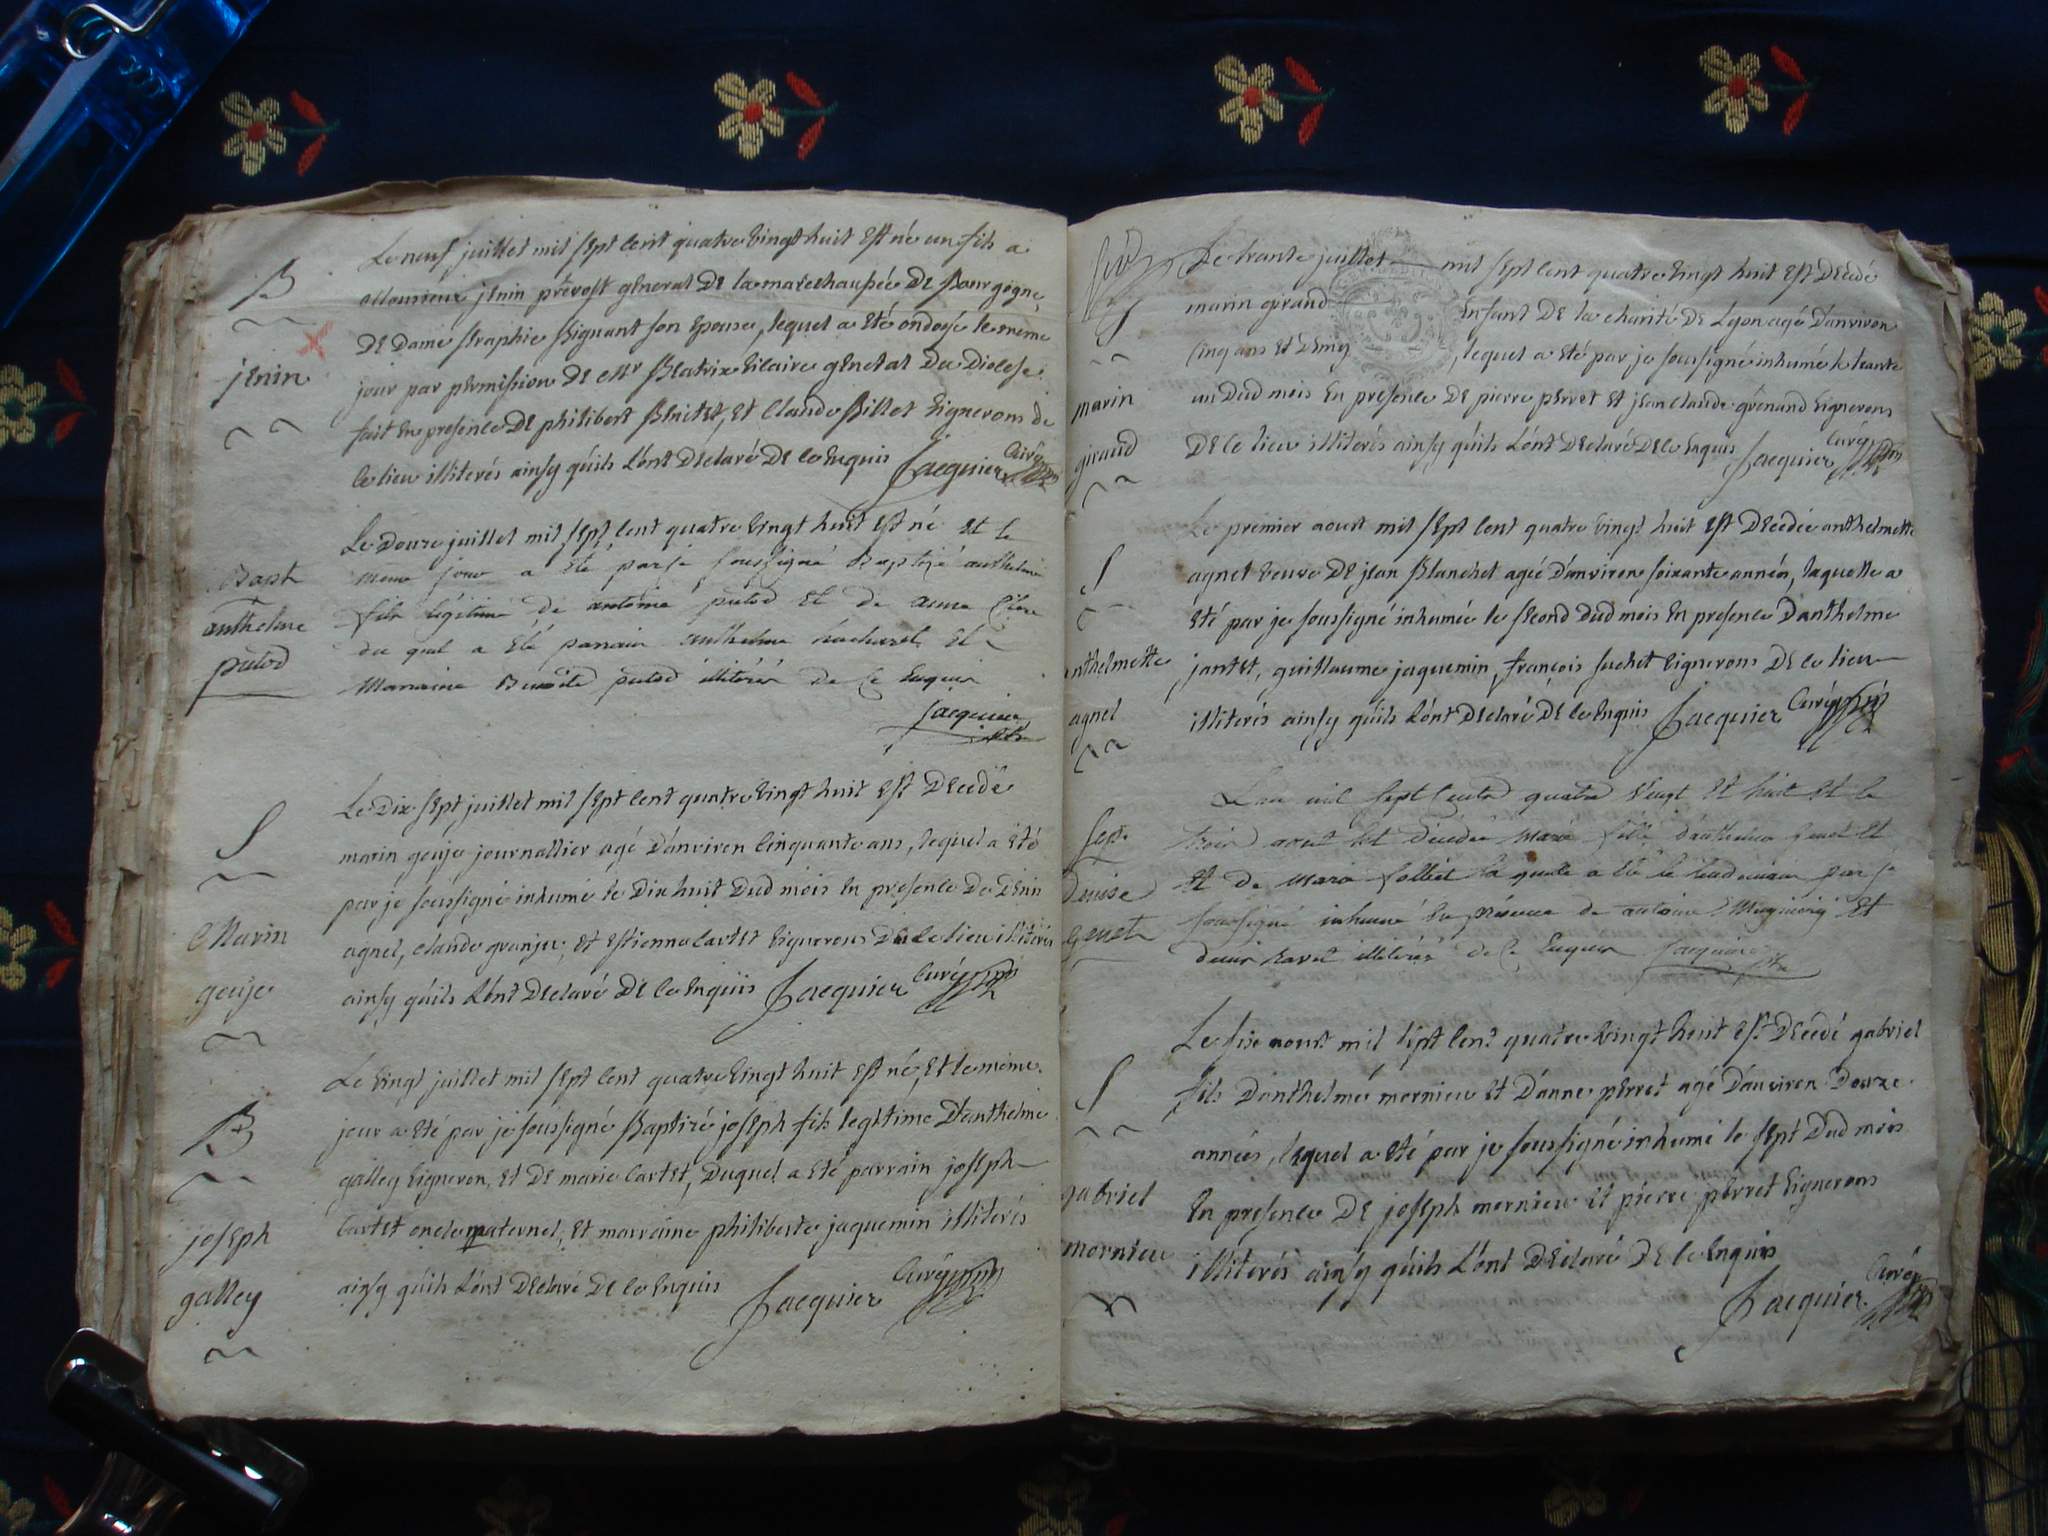 B
jenin
Le neuf juillet mil sept cent quatre vingt huit est né un fils a
Monsieur jenin prévost géneral de la marechaussée de Bourgogne,
de dame séraphie Biguant son épouse, lequel a eté ondoyé le meme
jour par permission de Mr Béatrix vicaire géneral du Diocese
fait en presence de philibert Benitet, et Claude Billet vignerons de
ce lieu illiterés ainsy qu'ils L'ont déclaré de ce enquis Jacquier Curé
Bapt
anthelme
putod
Le douze juillet mil sept cent quatre vingt huit est né et le
meme jour a été par je soussigné Baptizé anthelme
fils légitime de antoine putod et de anne
du quel a été parrain anthelme et
Marraine Benoite putod illiterés de ce enquis
Jacquier
S
Marin
gouje
Le dix sept juillet mil sept cent quatre vingt huit est decédé
marin gouje journallier agé d'anviron cinquante ans, lequel a été
par je soussigné inhumé le dix huit dud mois en presence de denis
agnel, claude granjer, et estienne cartet vignerons de ce lieu illiterés
ainsy qu'ils L'ont déclaré de ce enquis Jacquier Curé
B
joseph
galley
Le vingt juillet mil sept cent quatre vingt huit est né, et le meme
jour a eté par je soussigné Baptizé joseph fils legitime d'anthelme
galley vigneron, et de marie cartet, duquel a eté parrain joseph
Cartet oncle maternel, et marraine philiberte jaquemin illiterés
ainsy qu'ils L'ont déclaré de ce enquis Jacquier Curé
S
marin
giraud
Le trante juillet mil sept cent quatre vingt huit est decédé
marin giraud Enfant de la charité de Lyon agé d'anviron
cinq ans et demy, lequel a eté par je soussigné inhumé le trante
un dud mois en presence de pierre perret et jean claude grénand vignerons
de ce lieu illiterés ainsy qu'ils L'ont déclaré de ce enquis Jacquier Curé
S
anthelmette
agnel
Le premier aoust mil sept cent quatre vingt huit est decédée anthelmette
agnel veuve de jean Blanchet agée d'anviron soixante années, laquelle a
eté par je soussigné inhumée le second dud mois en presence d'anthelme
jantet, guillaume jaquemin, françois suchet vignerons de ce lieu
illiterés ainsy qu'ils L'ont déclaré de ce enquis Jacquier Curé
Sep.
Denise
genet
L'an mil sept cents quatre vingt et huit et le
trois aout est décédée Marie fille d'anthelme genet et
et de Marie folliet la quelle a été le lendemain par je
soussigné inhumé en présence de antoine et
denis Ravet illiterés de ce enquis Jacquier
S
gabriel
mornieu
Le six aoust mil sept cent quatre vingt huit est decédé gabriel
fils d'anthelme mornieu et d'anne perret agé d'anviron douze
années, lequel a eté par je soussigné inhumé le sept dud mois
en presence de joseph mornieu et pierre perret vignerons
illiterés ainsy qu'ils L'ont déclaré de ce enquis
Jacquier Curé